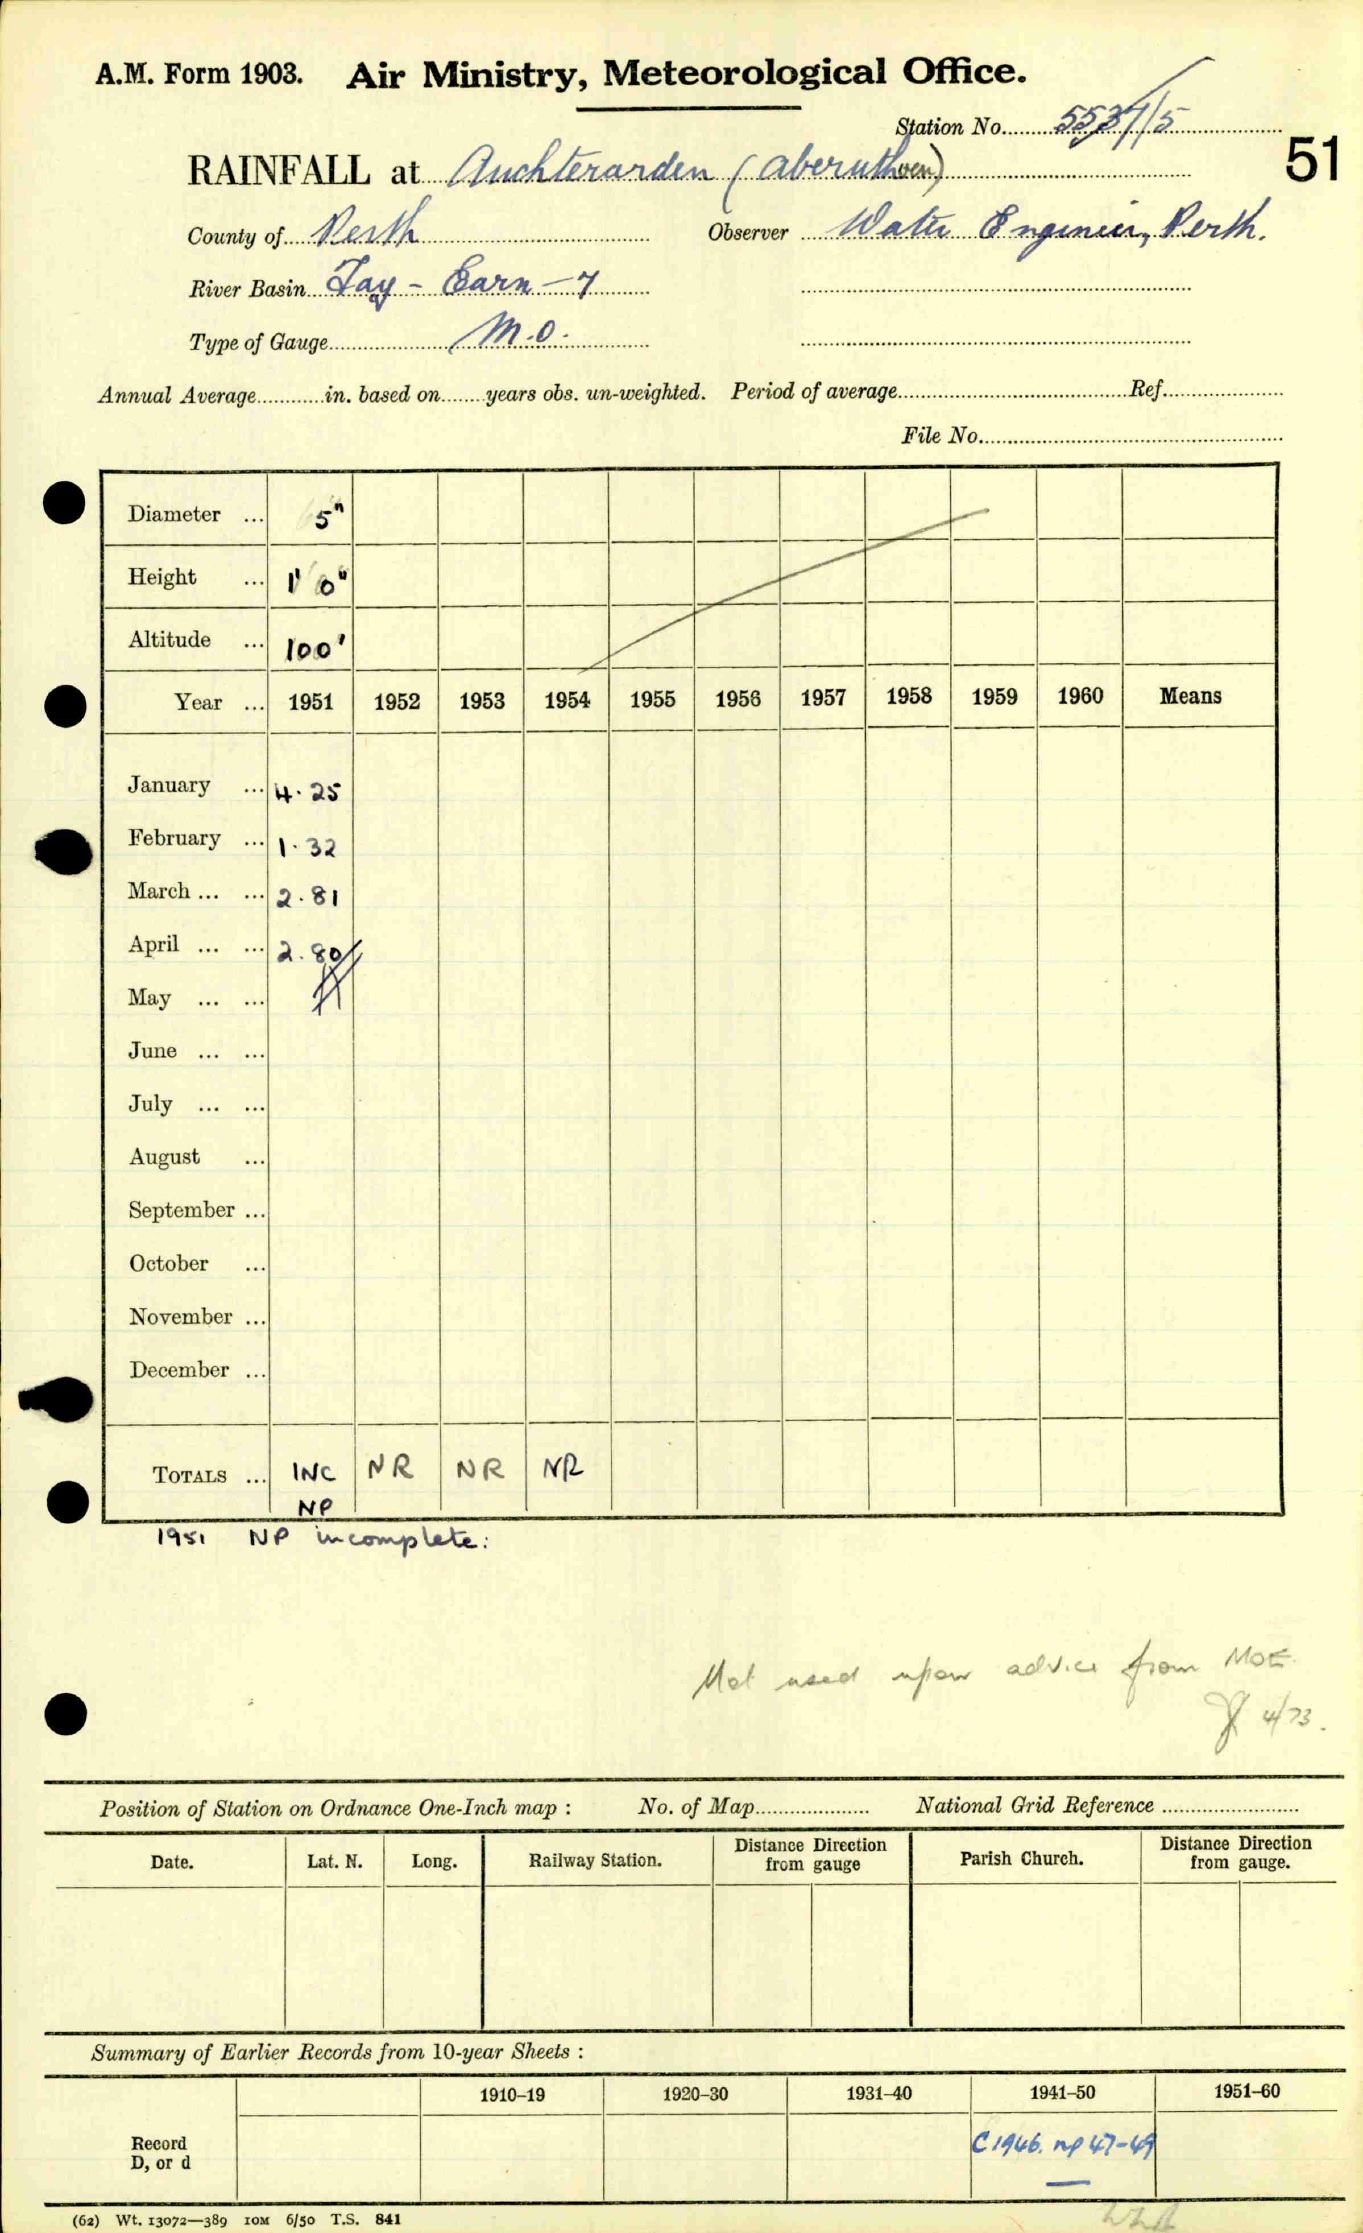 A.M. Form 1903. Air Ministry, Meteorological Office.
Station No. 5537/5
51
RAINFALL at Auchterarden (Aberuthven)
County of Perth Observer Water Engineer, Perth.
River Basin Tay - Earn - 7
Type of Gauge M.O.
Annual Average in. based on years obs. un-weighted. Period of average Ref.
File No.
Diameter ... 5"
Height ... 1' 0"
Altitude ... 100'
Year ... 1951 1952 1953 1954 1955 1956 1957 1958 1959 1960 Means
January ... 4.25
February ... 1.32
March ... ... 2.81
April ... ... 2.80
May ... ...
June ... ...
July ... ...
August ...
September ...
October ...
November ...
December ...
TOTALS ... INC NR NR NR
NP
1951 NP incomplete:
Not used upon advice from MOE
4/73.
Position of Station on Ordnance One-Inch map : No. of Map National Grid Reference
Date. Lat. N. Long. Railway Station. Distance Direction from gauge Parish Church. Distance Direction from gauge.
Summary of Earlier Records from 10-year Sheets :
1910–19 1920–30 1931–40 1941–50 1951–60
Record
D, or d
C 1946. np 47-49
(62) Wt. 13072—389 10M 6/50 T.S. 841